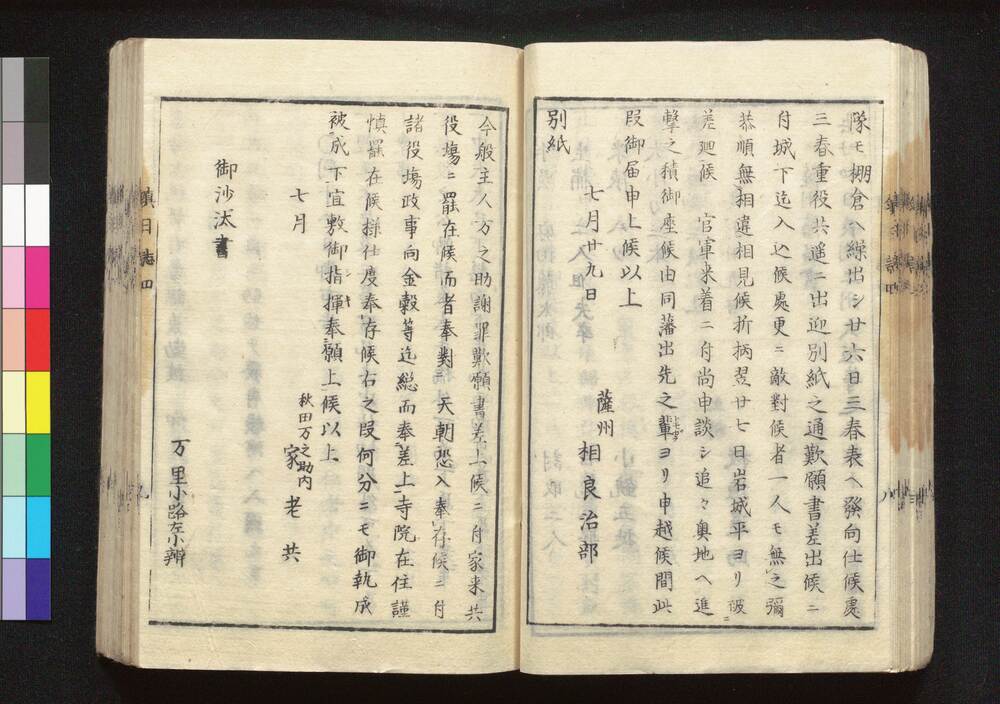 隊モ棚倉ヘ繰出シ廿六日三春表ヘ發向仕候處
三春重役共遥ニ出迎別紙之通歎願書差出候ニ
付城下迄入込候處更ニ敵對候者一人モ無之彌
恭順無相違相見候折柄翌廿七日岩城平ヨリ破
差廻候 官軍来着ニ付尚申談シ追々奥地ヘ進
擊之積御座候由同藩出先之輩ヨリ申越候間此
段御届申上候以上
七月廿九日
薩州 相良治部
別紙
今般主人万之助謝罪歎願書差上候ニ付家来共
役場ニ罷在候而者奉對 天朝恐入奉存候ニ付
諸役場政事向金穀等迄総而奉差上寺院在住謹
慎罷在候様仕度奉存候右之段何分ニモ御執成
被成下宜敷御指揮奉願上候以上
七月
秋田万之助内
家老共
御沙汰書
万里小路左少辨
鎮日志四
八
九